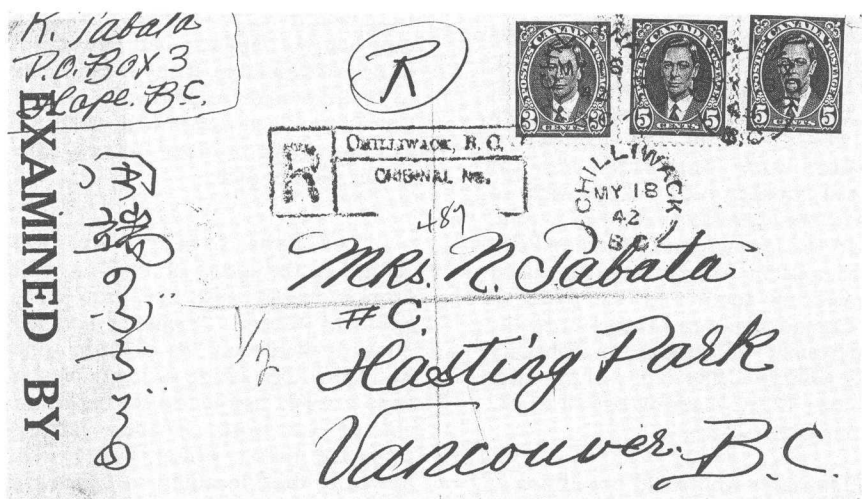 K. Tabata
P.O. BOX 3
Hope. B.C.
R
POSTES CANADA POSTAGE
3 CENTS 3
POSTES CANADA POSTAGE
5 CENTS 5
POSTES CANADA POSTAGE
5 CENTS 5
R
CHILLIWACK, B. C.
ORIGINAL No.
487
CHILLIWACK
MY 18
42
B.C.
EXAMINED BY
MRS. N. Tabata
#C,
Hasting Park
Vancouver. B.C.
1/2